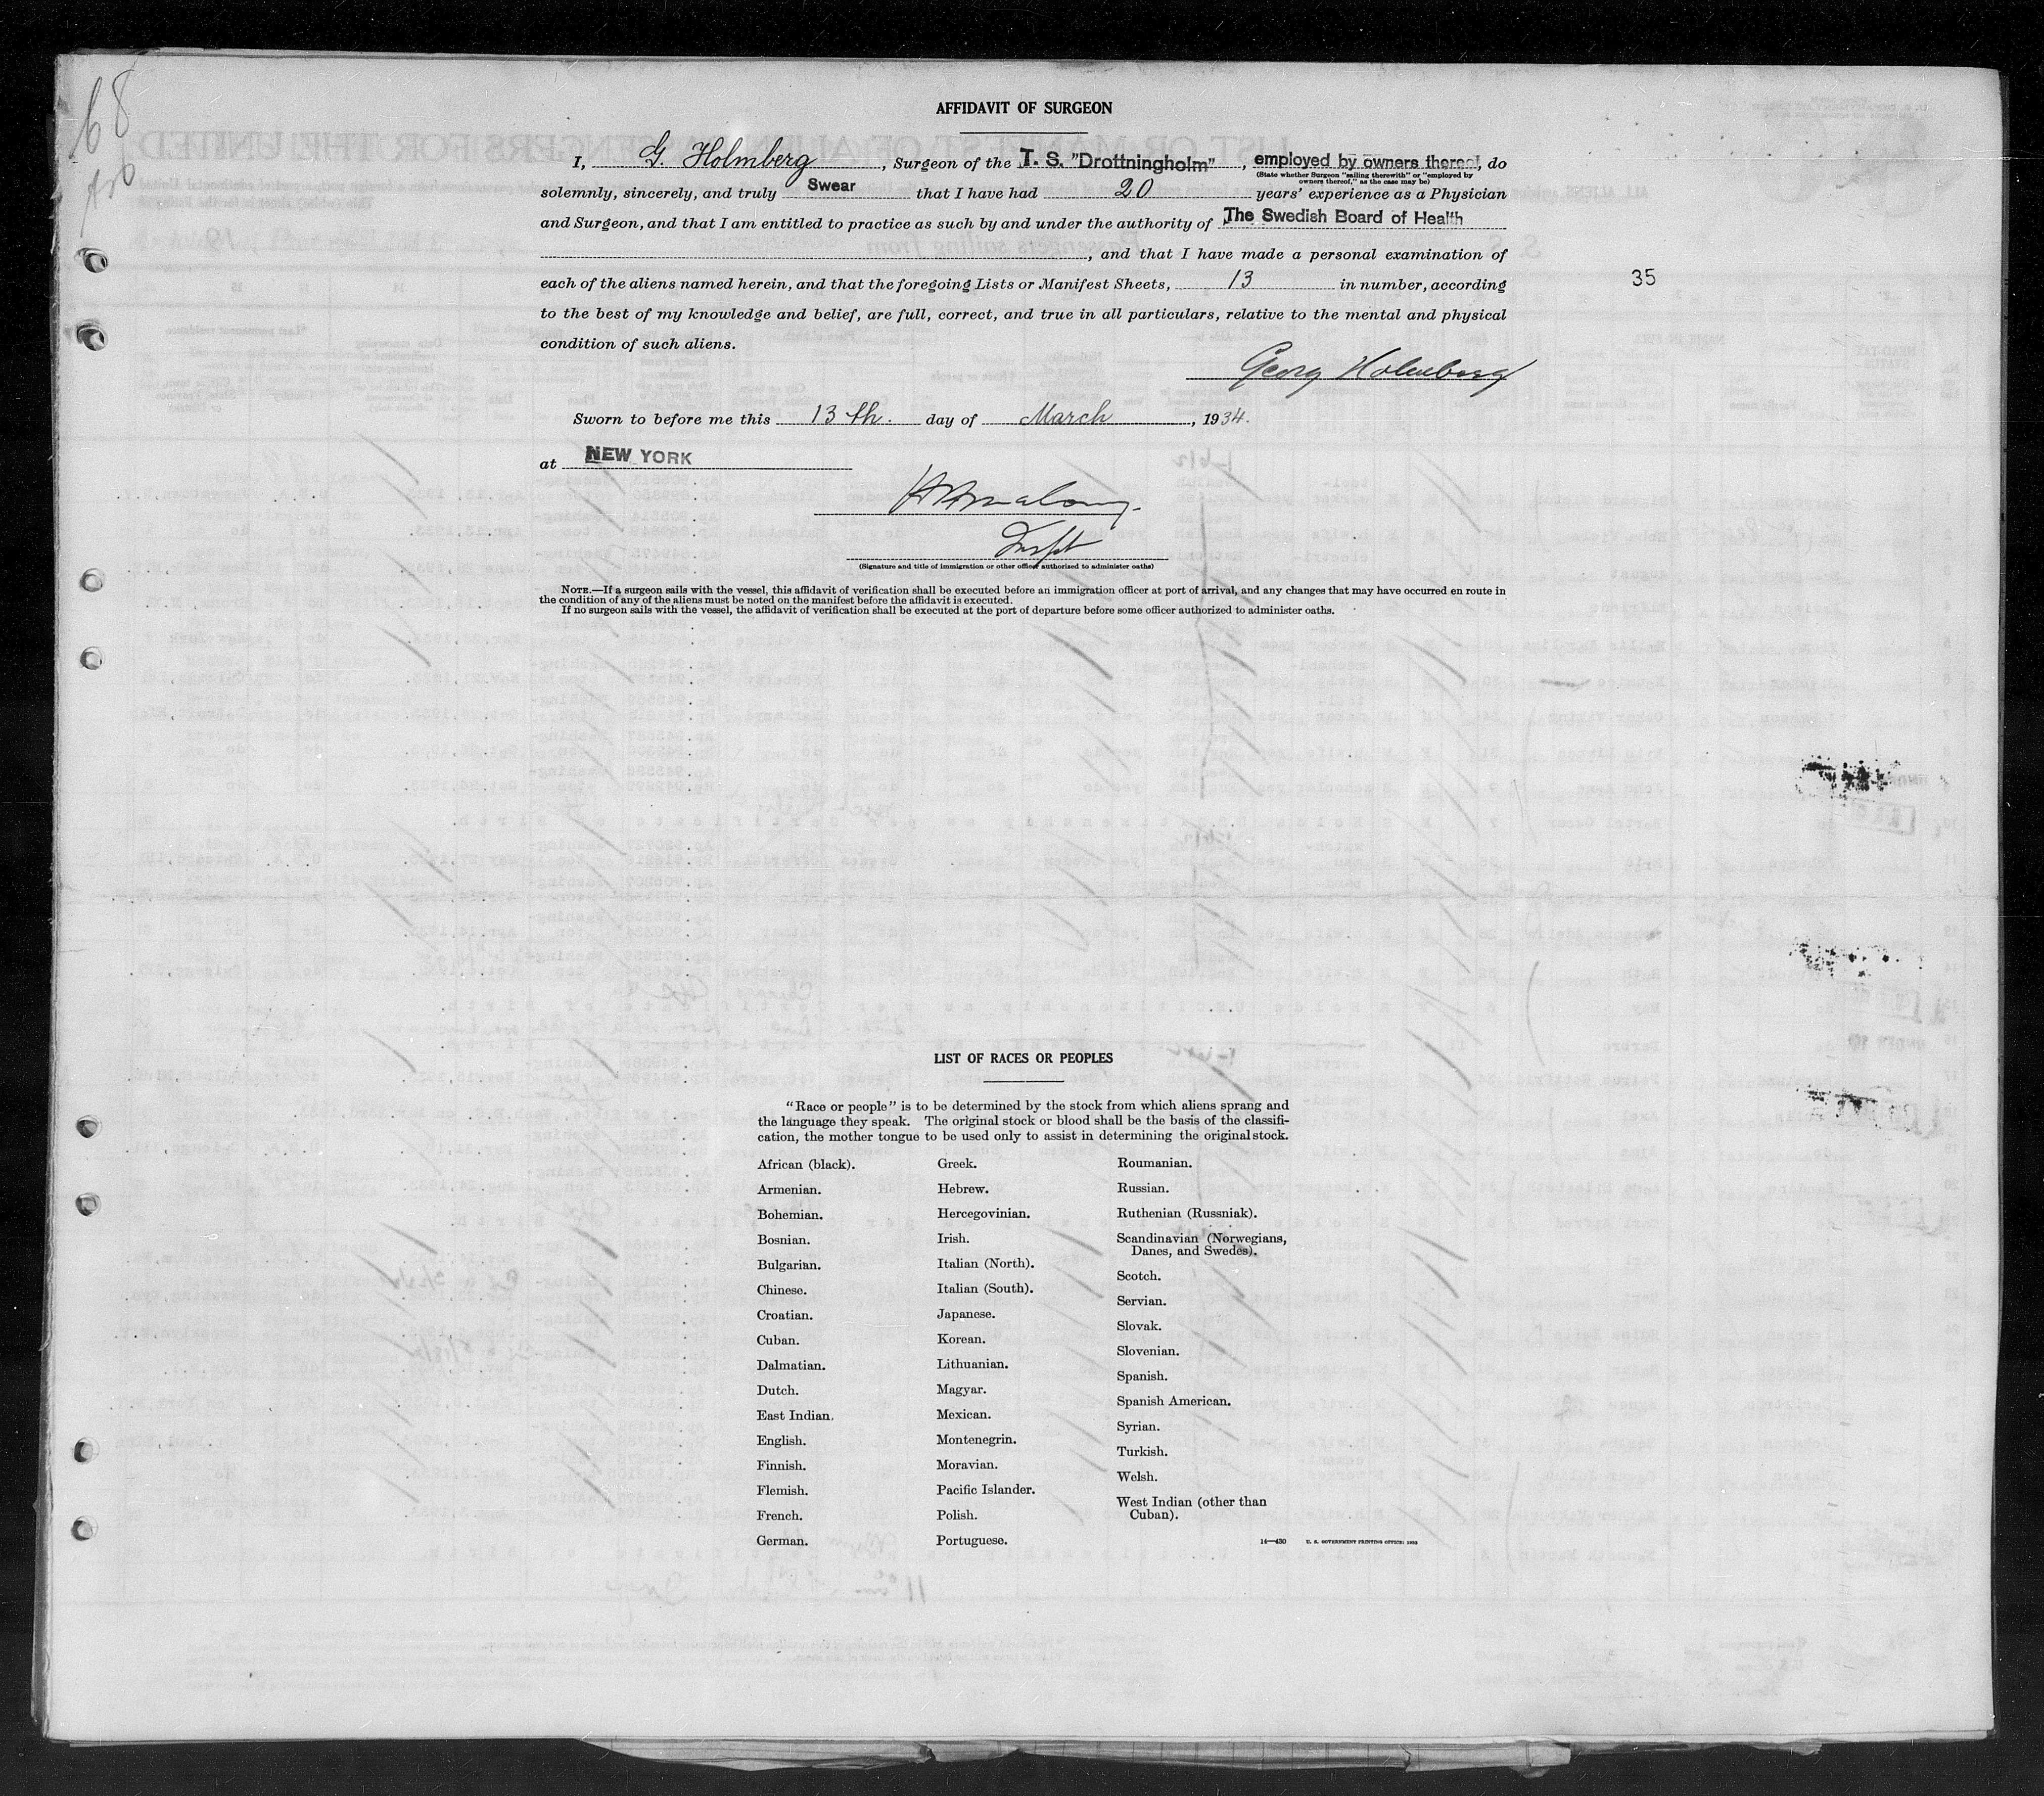 68
AFFIDAVIT OF SURGEON
I, G. Holmberg, Surgeon of the T. S. "Drottningholm", employed by owners thereof, do
(State whether Surgeon "sailing therewith" or "employed by
owners thereof," as the case may be)
solemnly, sincerely, and truly Swear that I have had 20 years' experience as a Physician
and Surgeon, and that I am entitled to practice as such by and under the authority of The Swedish Board of Health
, and that I have made a personal examination of
each of the aliens named herein, and that the foregoing Lists or Manifest Sheets, 13 in number, according
35
to the best of my knowledge and belief, are full, correct, and true in all particulars, relative to the mental and physical
condition of such aliens.
Georg Holmberg
Sworn to before me this 13th. day of March, 1934.
at NEW YORK
Inspt
(Signature and title of immigration or other officer authorized to administer oaths)
NOTE.—If a surgeon sails with the vessel, this affidavit of verification shall be executed before an immigration officer at port of arrival, and any changes that may have occurred en route in
the condition of any of the aliens must be noted on the manifest before the affidavit is executed.
If no surgeon sails with the vessel, the affidavit of verification shall be executed at the port of departure before some officer authorized to administer oaths.
LIST OF RACES OR PEOPLES
"Race or people" is to be determined by the stock from which aliens sprang and
the language they speak. The original stock or blood shall be the basis of the classifi-
cation, the mother tongue to be used only to assist in determining the original stock.
African (black).
Armenian.
Bohemian.
Bosnian.
Bulgarian.
Chinese.
Croatian.
Cuban.
Dalmatian.
Dutch.
East Indian.
English.
Finnish.
Flemish.
French.
German.
Greek.
Hebrew.
Hercegovinian.
Irish.
Italian (North).
Italian (South).
Japanese.
Korean.
Lithuanian.
Magyar.
Mexican.
Montenegrin.
Moravian.
Pacific Islander.
Polish.
Portuguese.
Roumanian.
Russian.
Ruthenian (Russniak).
Scandinavian (Norwegians,
Danes, and Swedes).
Scotch.
Servian.
Slovak.
Slovenian.
Spanish.
Spanish American.
Syrian.
Turkish.
Welsh.
West Indian (other than
Cuban).
14—430 U. S. GOVERNMENT PRINTING OFFICE: 1933